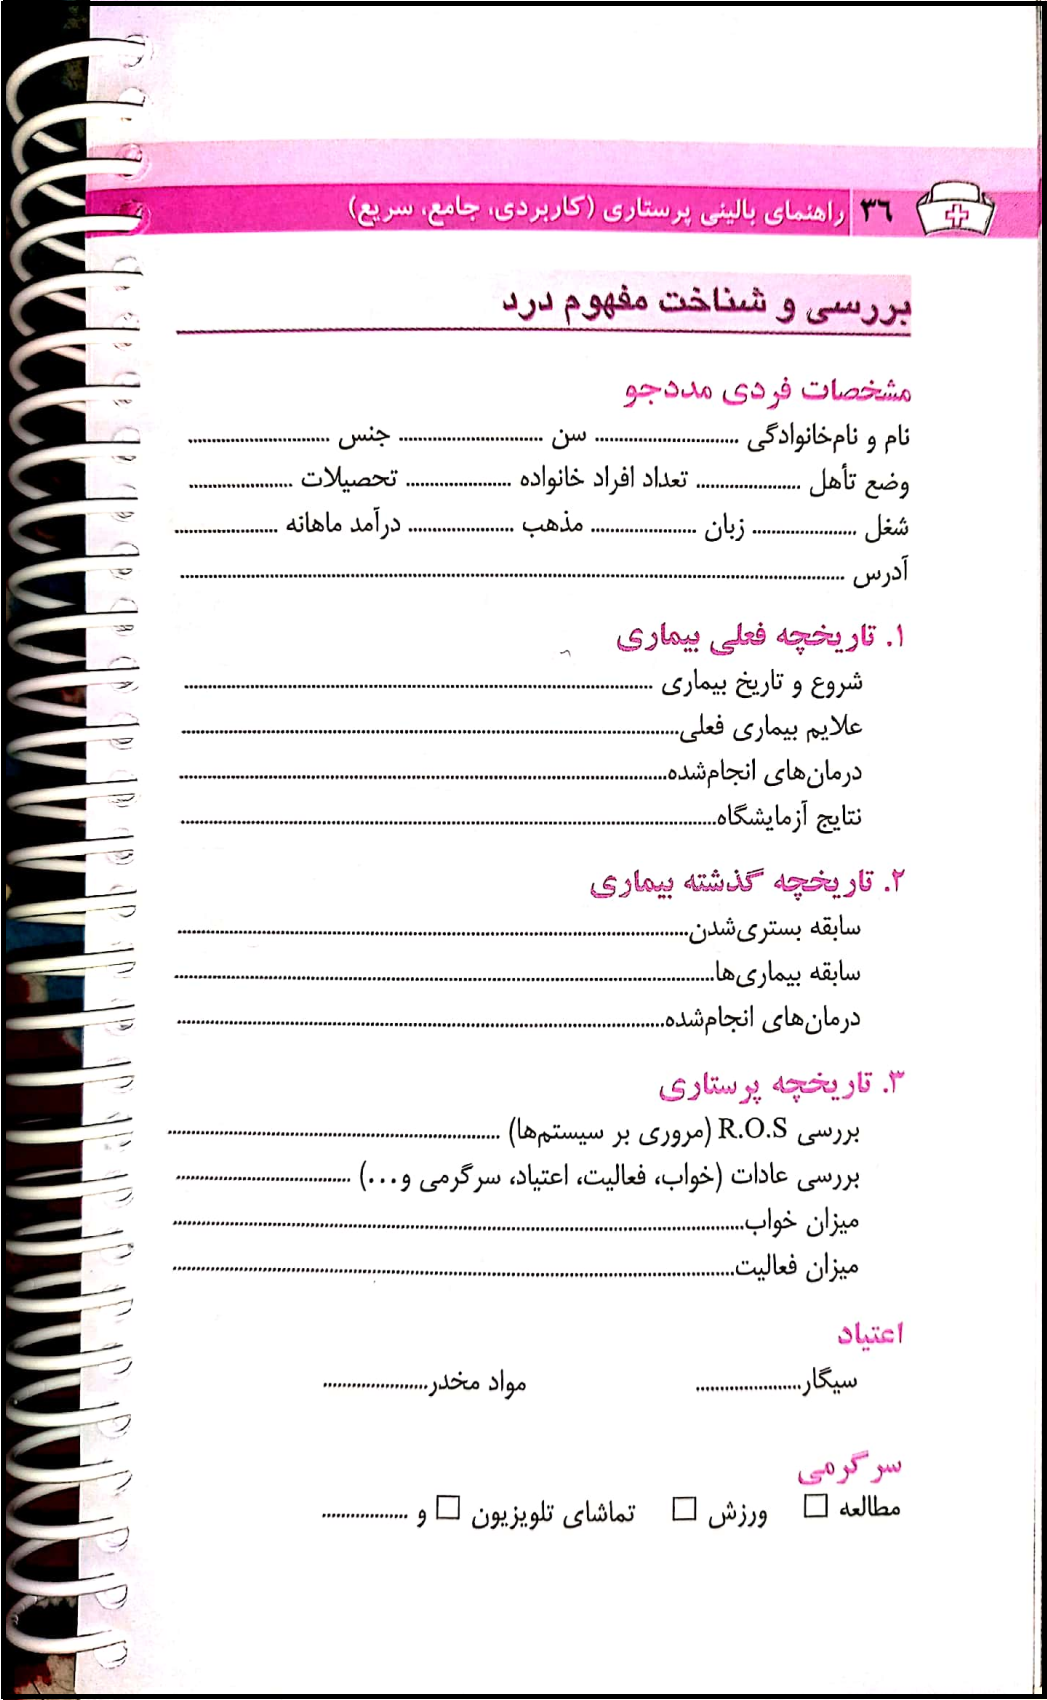 ۳۶ راهنمای بالینی پرستاری (کاربردی، جامع، سریع)
بررسی و شناخت مفهوم درد
مشخصات فردی مددجو
نام و نام‌خانوادگی ........................... سن ........................... جنس ...........................
وضع تأهل .................... تعداد افراد خانواده .................... تحصیلات ....................
شغل .................... زبان .................... مذهب .................... درآمد ماهانه ....................
آدرس ................................................................................
۱. تاریخچه فعلی بیماری
شروع و تاریخ بیماری ............................................................
علایم بیماری فعلی............................................................
درمان‌های انجام‌شده............................................................
نتایج آزمایشگاه............................................................
۲. تاریخچه گذشته بیماری
سابقه بستری‌شدن............................................................
سابقه بیماری‌ها............................................................
درمان‌های انجام‌شده............................................................
۳. تاریخچه پرستاری
بررسی R.O.S (مروری بر سیستم‌ها) ........................................
بررسی عادات (خواب، فعالیت، اعتیاد، سرگرمی و...) ....................
میزان خواب............................................................
میزان فعالیت............................................................
اعتیاد
سیگار.................... مواد مخدر....................
سرگرمی
مطالعه □ ورزش □ تماشای تلویزیون □ و .................